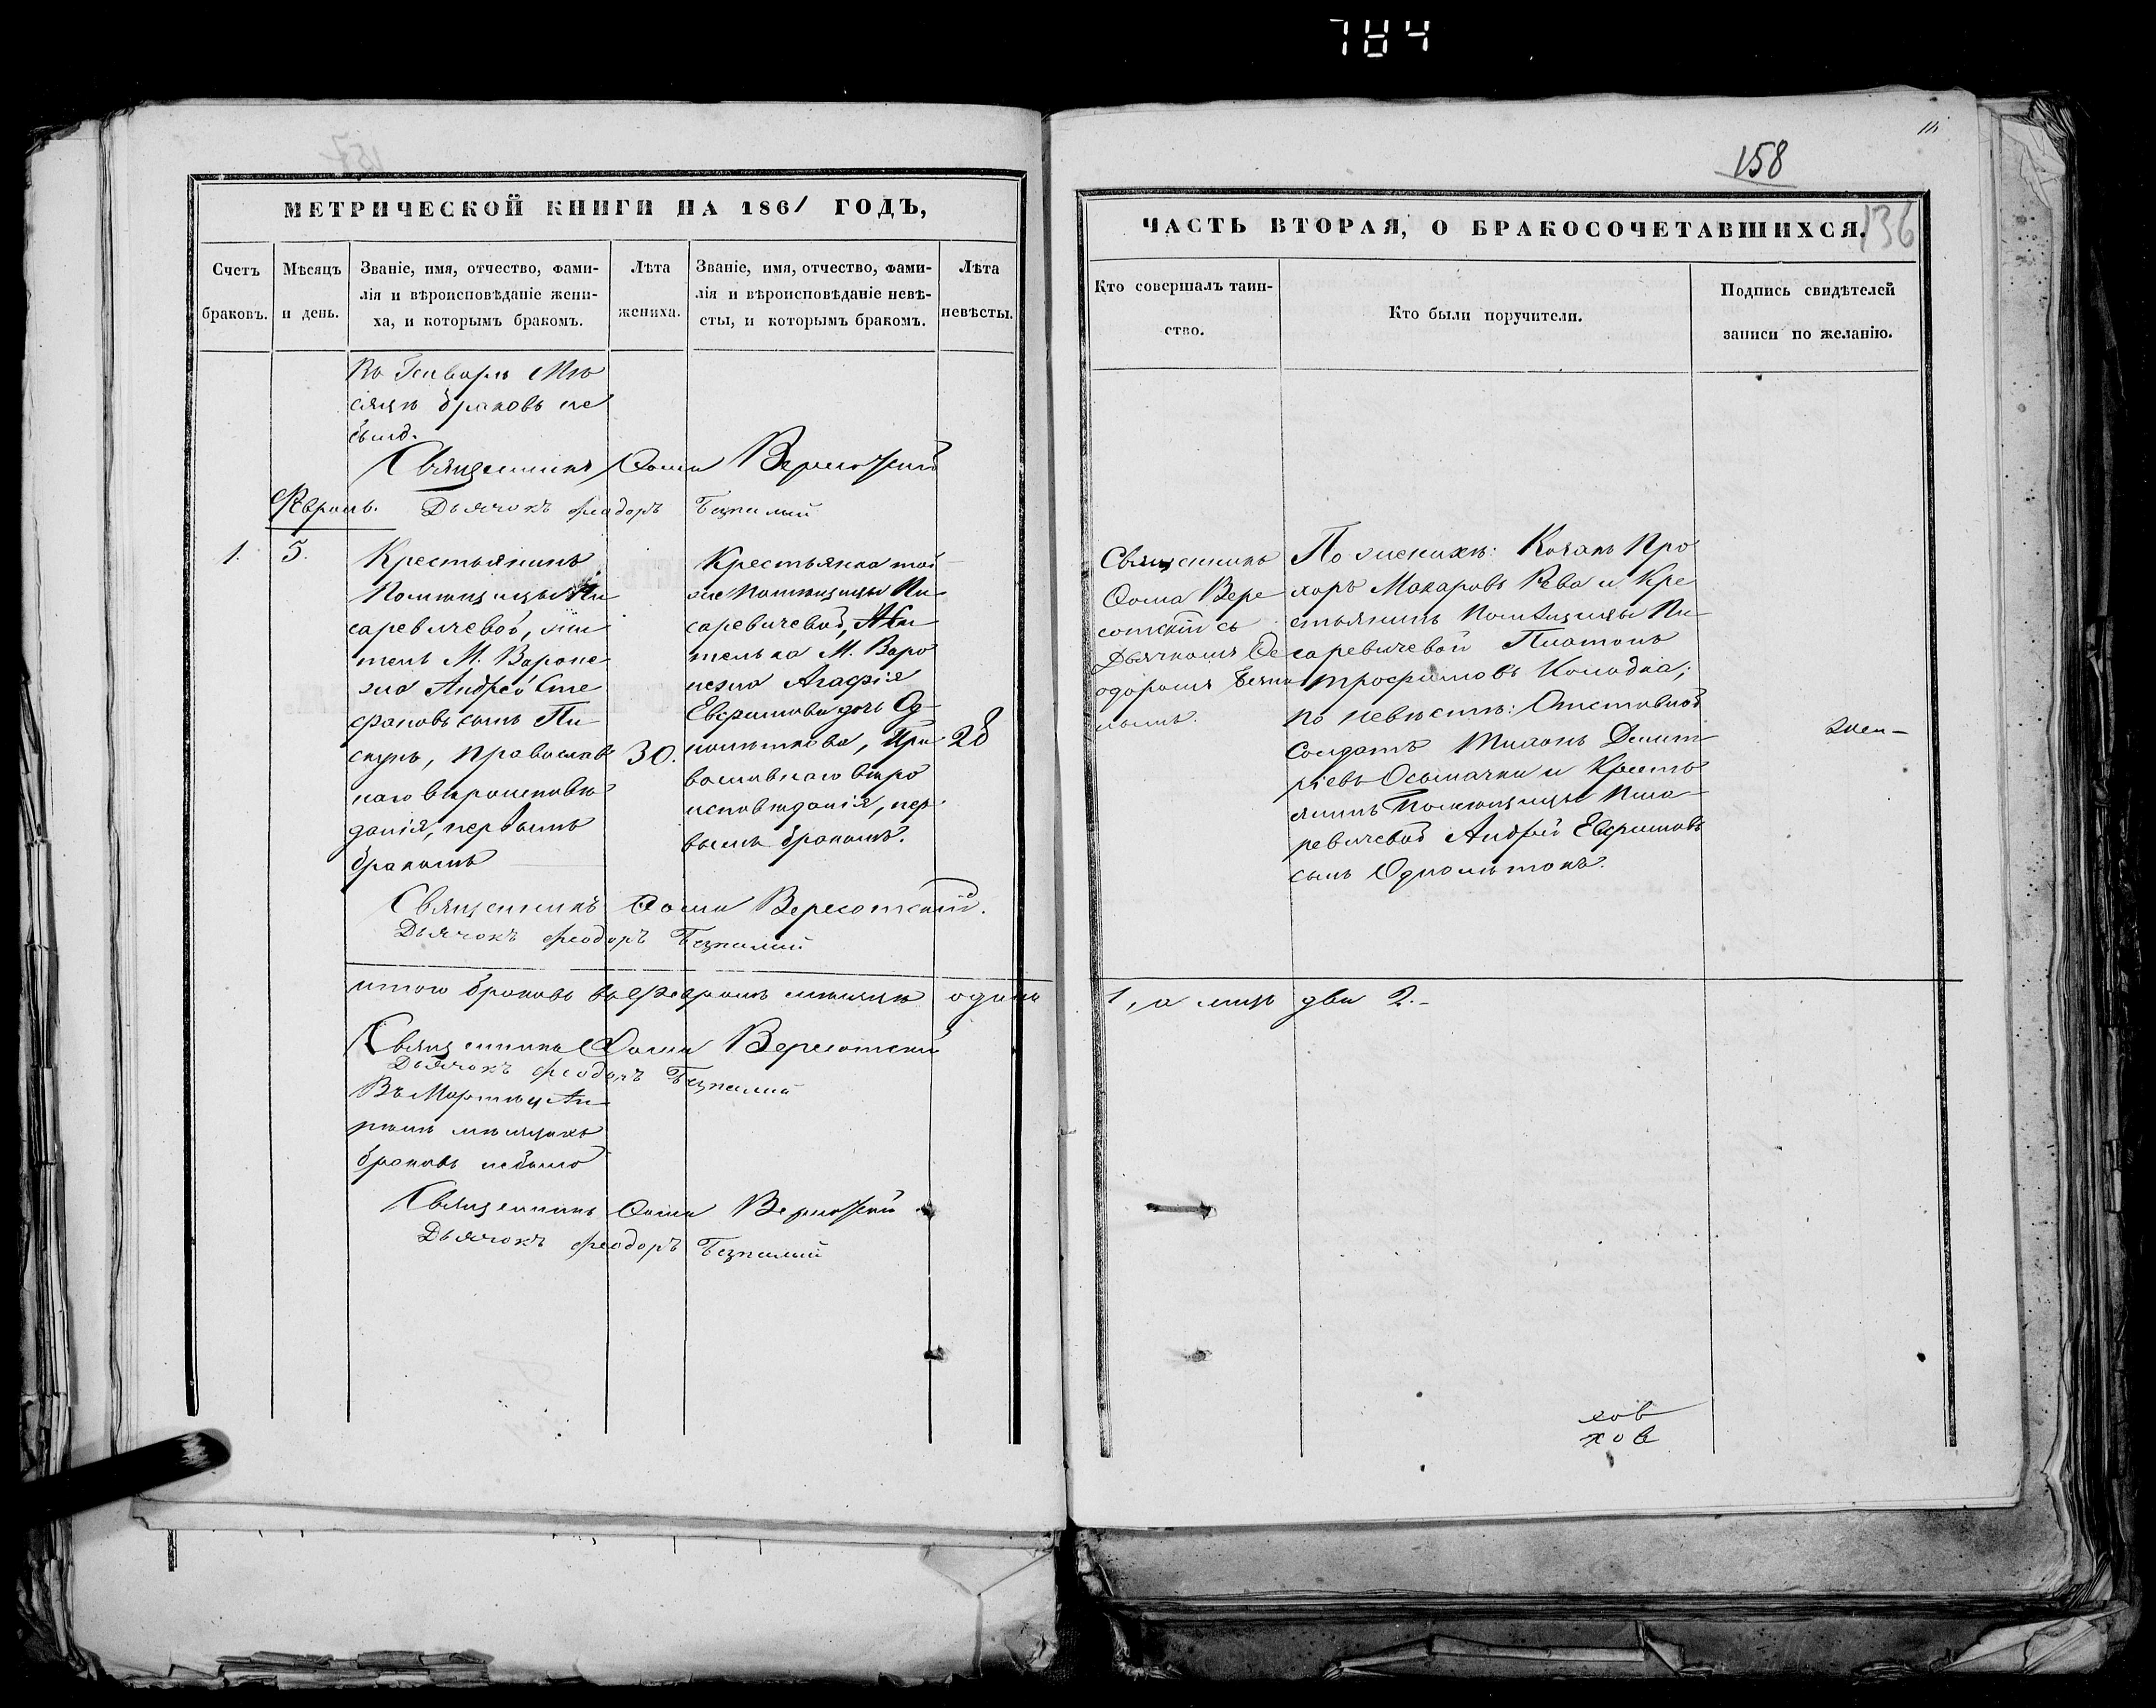 784
158
136
МЕТРИЧЕСКОЙ КНИГИ НА 1861 ГОДЪ,
Счетъ браковъ.
Мѣсяцъ и день.
Званіе, имя, отчество, фами-
лія и вѣроисповѣданіе жени-
ха, и которымъ бракомъ.
Лѣта жениха.
Званіе, имя, отчество, фами-
лія и вѣроисповѣданіе невѣ-
сты, и которымъ бракомъ.
Лѣта невѣсты.
Въ Генварѣ Мѣ
сяцѣ браковъ не
было.
Священникъ Ѳома Вересотскій
Февраль. Дьячокъ Феодоръ
1. 5.
Крестьянинъ
Помѣщицы Пи
саревичевой, жи
тель М. Вороне
жа Андрей Сте
фановъ сынъ Пи
скунъ, православ
наго вѣроисповѣ
данія, первымъ
бракомъ
30.
Крестьянка той
же Помѣщицы Пи
саревичевой, Жи
телька М. Воро
нежа Агафія
Евфимова дочь Од
нолѣткова, Пра
вославнаго вѣро
исповѣданія, пер
вымъ бракомъ.
28
Священникъ Ѳома Вересотскій.
Дьячокъ Феодоръ
итого браковъ въ Февралѣ мѣсяцѣ одинъ
Священникъ Ѳома Вересотскій
Дьячокъ Феодоръ
Въ Мартѣ и Ап
рѣлѣ мѣсяцахъ
браковъ небыло
Священникъ Ѳома Вересотскій
Дьячокъ Феодоръ
ЧАСТЬ ВТОРАЯ, О БРАКОСОЧЕТАВШИХСЯ.
Кто совершалъ таин-
ство.
Кто были поручители.
Подпись свидѣтелей
записи по желанію.
Священникъ
Ѳома Вере
сотскій съ
Дьячкомъ Ѳе
одоромъ
По женихѣ: Козакъ Про
хоръ Макаровъ Рева и Кре
стьянинъ Помѣщицы Пи
саревичевой Платонъ
Трофимовъ Колодка;
по невѣстѣ: Отставной
Солдатъ Тихонъ Димит
ріевъ Осьмачка и Кресть
янинъ Помѣщицы Писа
ревичевой Андрей Евфимовъ
сынъ Однолѣтокъ.
1, а лицъ два 2.-